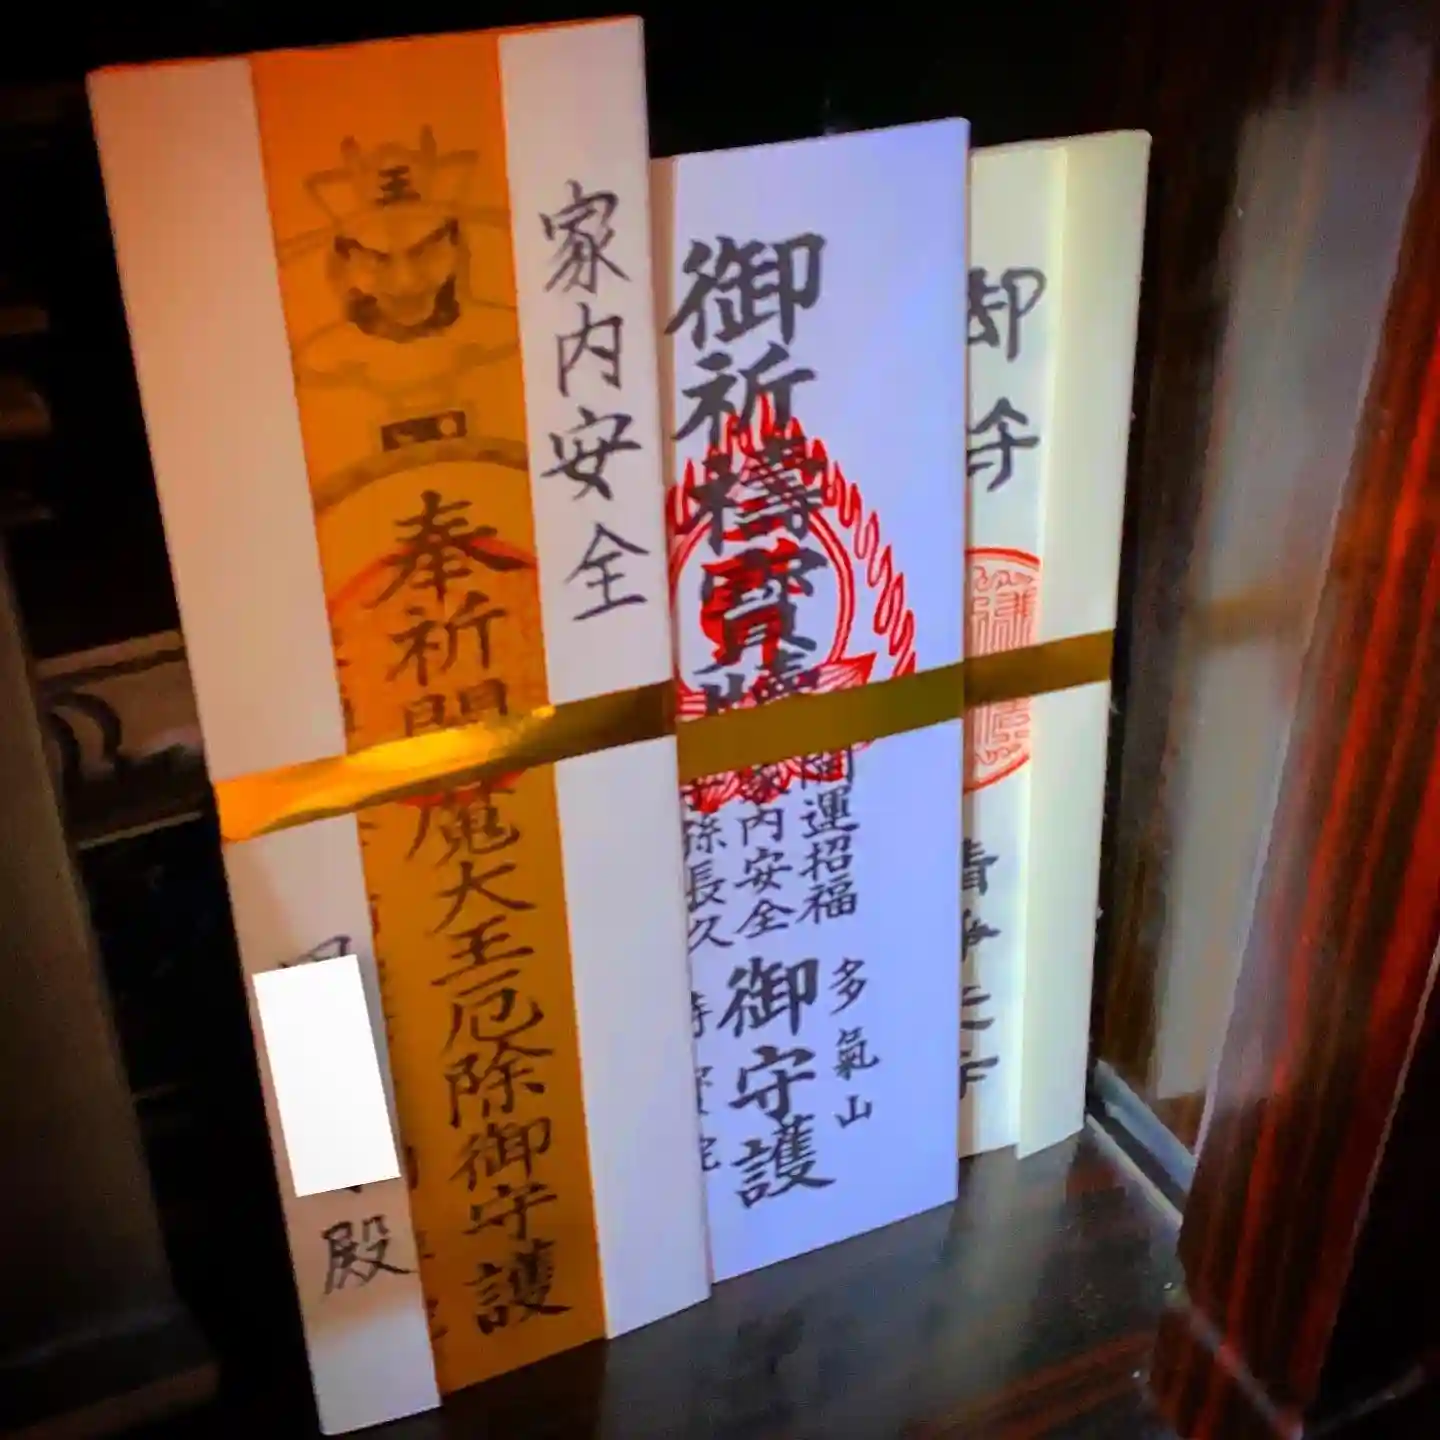 家内安全
王
奉祈閻魔大王厄除御守護
殿
御祈禱寶牘
開運招福
家内安全
子孫長久
御守護
多氣山
御守